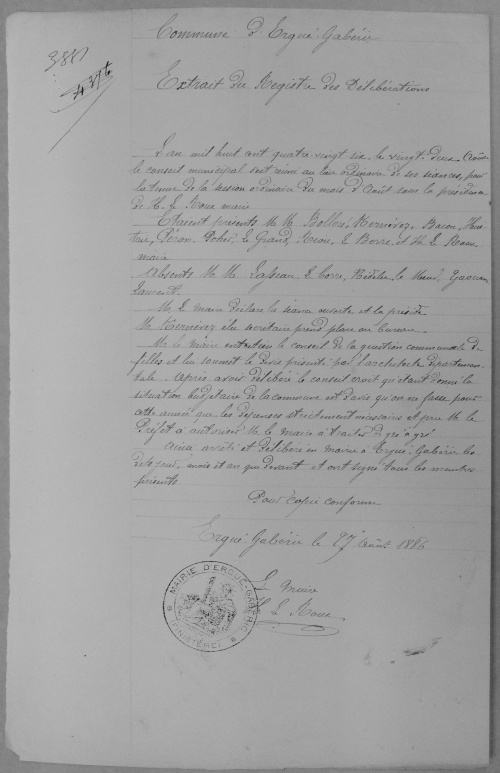 3887
4376
Commune d'Ergué-Gabéric
Extrait du Registre des Délibérations
L'an mil huit cent quatre vingt six le vingt-deux Août
le conseil municipal s'est réuni au lieu ordinaire de ses séances, pour
la tenue de la session ordinaire du mois d'Août sous la présidence
de M. Le Roux maire
Etaient présents M M Bolloré, Kernévez, Baron,
Péron, Le Grand, Le Berre, et M. Le Roux
maire
Absents M M Lasseau Le Corre, Rédélec, le
Laurent
M. Le maire déclare la séance ouverte et la préside
M. Kernévez élu secrétaire prend place au bureau
M. le Maire entretien le conseil de la question communale de
filles et lui soumet le devis présenté par l'architecte départemen-
tale. Après avoir délibéré le conseil croit qu'étant donné la
situation budgétaire de la commune est d'avis qu'on ne fasse pour
cette année que les dépenses strictement nécessaires et prie M. le
Préfet à autoriser M. le maire à traiter de gré à gré
Ainsi arrêté et délibéré en mairie à Ergué-Gabéric les
dits jour, mois et an que devant et ont signé tous les membres
présents
Pour copie conforme
Ergué-Gabéric le 27 Août 1886
Le Maire
Le Roux
MAIRIE D'ERGUÉ-GABÉRIC
(FINISTÈRE)